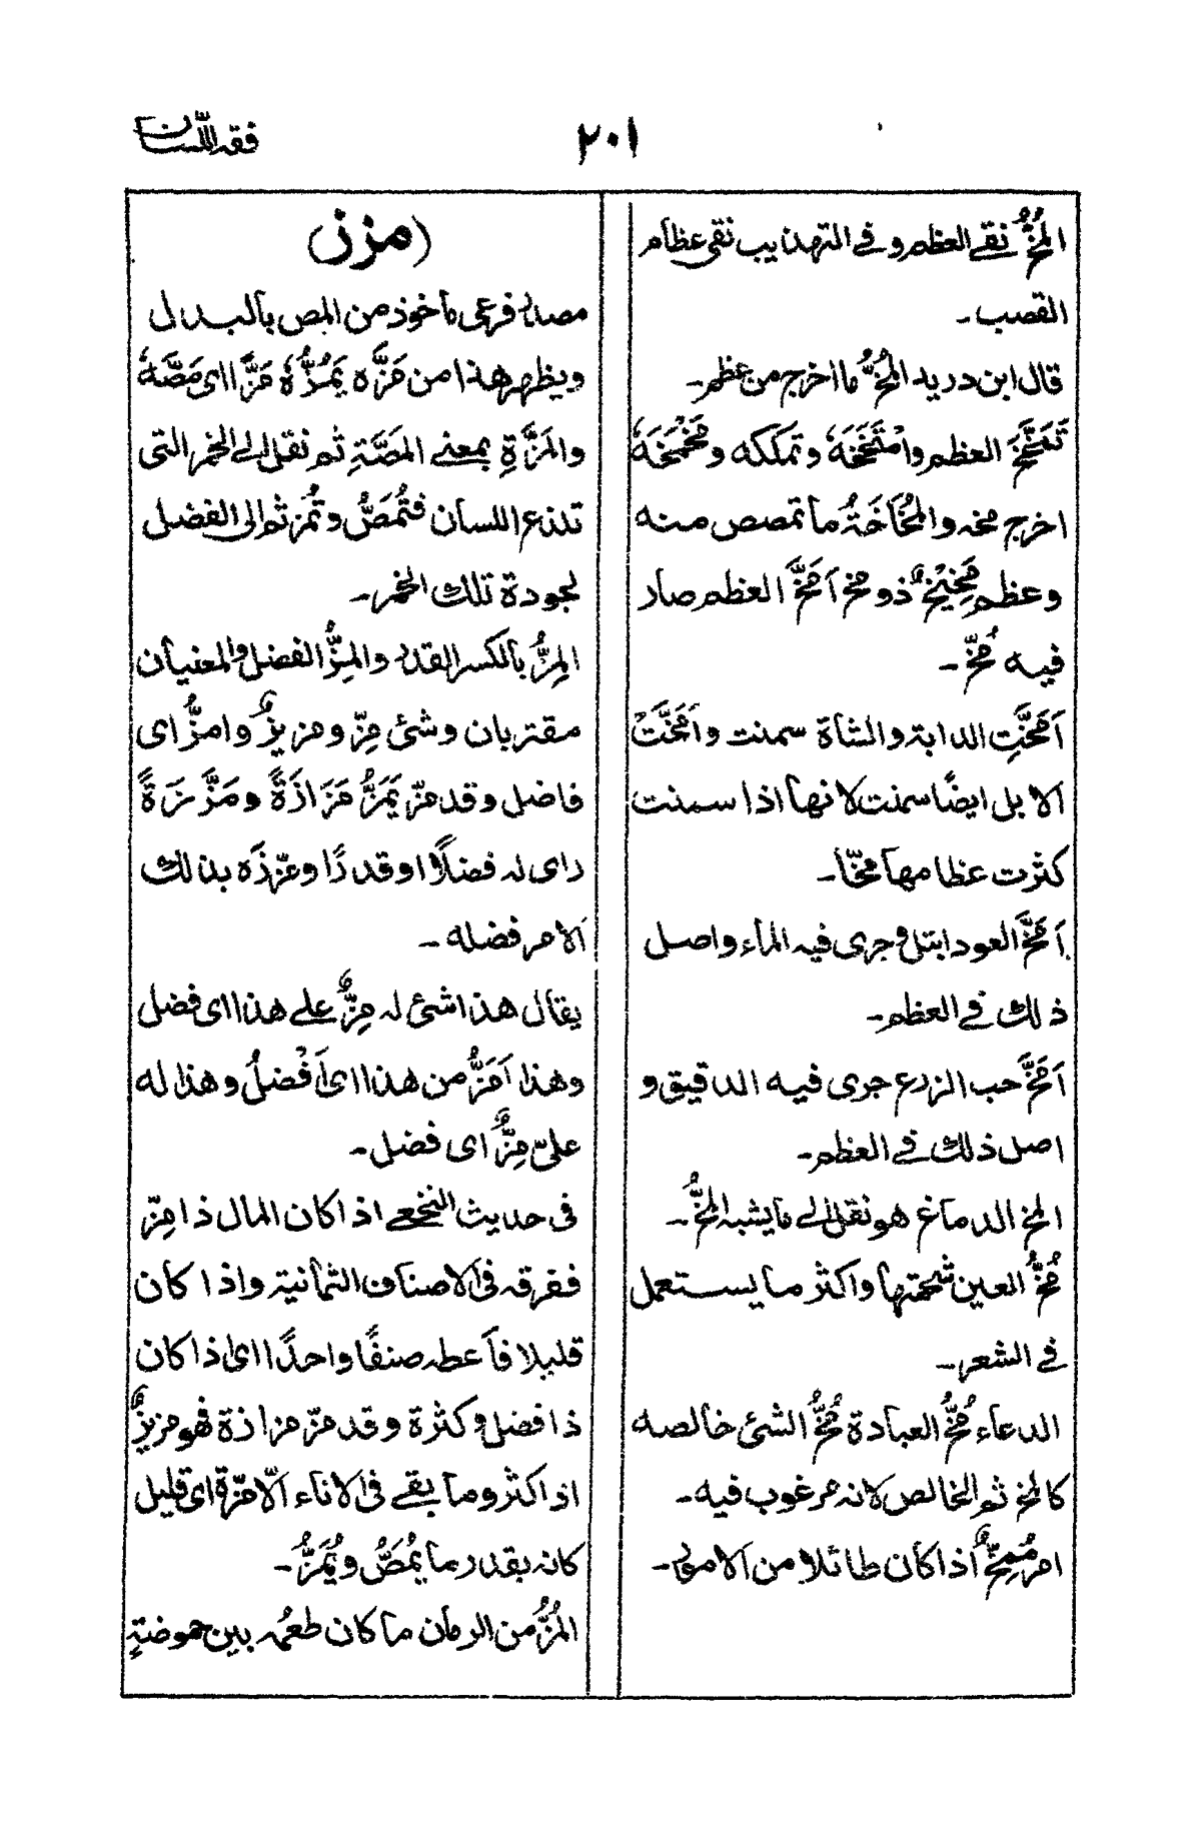 فقہ اللسان
٢٠١
المُخُّ نقي العظم و في التهذيب نقى عظام
القصب ـ
قال ابن دريد المُخُّ ما اخرج من عظم ـ
تَمَخَّخَ العظم وامْتَخَخَهٗ وتمككه ومَخْمَخَهٗ
اخرج مخه والمُخَاخَةُ ما تمصص منه
وعظم مَخِيْخٌ ذو مخ اَمَخَّ العظم صار
فيه مُخٌّ ـ
اَمَخَّتِ الدابة والشاة سمنت واَمَخَّتْ
الابل ايضًا سمنت لانها اذا سمنت
كثرت عظامها مخًّا ـ
اَمَخَّ العود ابتل وجرى فيه الماء واصل
ذلك في العظم ـ
اَمَخَّ حب الزرع جرى فيه الدقيق و
اصل ذلك في العظم ـ
المخ الدماغ هو نقل الى ما يشبه المُخَّ ـ
مُخُّ العين شحمتها واكثر ما يستعمل
في الشعر ـ
الدعاء مُخُّ العبادة مُخُّ الشئ خالصه
كالمخ ثم الخالص لانه مرغوب فيه ـ
امر مُمِخٌّ اذا كان طائلا من الامور ـ
(مزز)
مصدر فرعى ماخوذ من المص بالبدل
ويظهر هذا من مَزَّه يَمُزُّهٗ مَزًّا اى مَصَّهٗ
والمَزَّةِ بمعنى المَصَّةِ ثم نقل الى الخمر التى
تلذع اللسان فتُمَصُّ وتُمَز ثم الى الفضل
لجودة تلك الخمر ـ
المِزُّ بالكسر القدر والمِزُّ الفضل والمعنيان
مقتربان وشئ مِزّ ومزيزٌ وامزُّ اى
فاضل وقد مزّ يَمَزُّ مَزَازَةً ومَزَّ زَةً
راى له فضلًا او قدرًا وعزّزَه بذالك
الامر فضله ـ
يقال هذا شئ له مِزٌّ على هذا اى فضل
وهذا اَمَزُّ من هذا اى اَفْضلُ وهذا له
علىّ مِزٌّ اى فضل ـ
فى حديث النخعي اذا كان المال ذا مِزّ
ففرقه فى الاصناف الثمانية واذا كان
قليلا فاَعطه صنفًا واحدًا اى اذا كان
ذا فضل وكثرة وقد مزّ مزازة فهو مزيزٌ
اذا كثر وما بقي فى الاناء الّا مزّة اى قليل
كانه بقدر ما يُمَصُّ ويُمَزُّ ـ
المُزُّ من الرمان ما كان طعمُه بين حموضةٍ